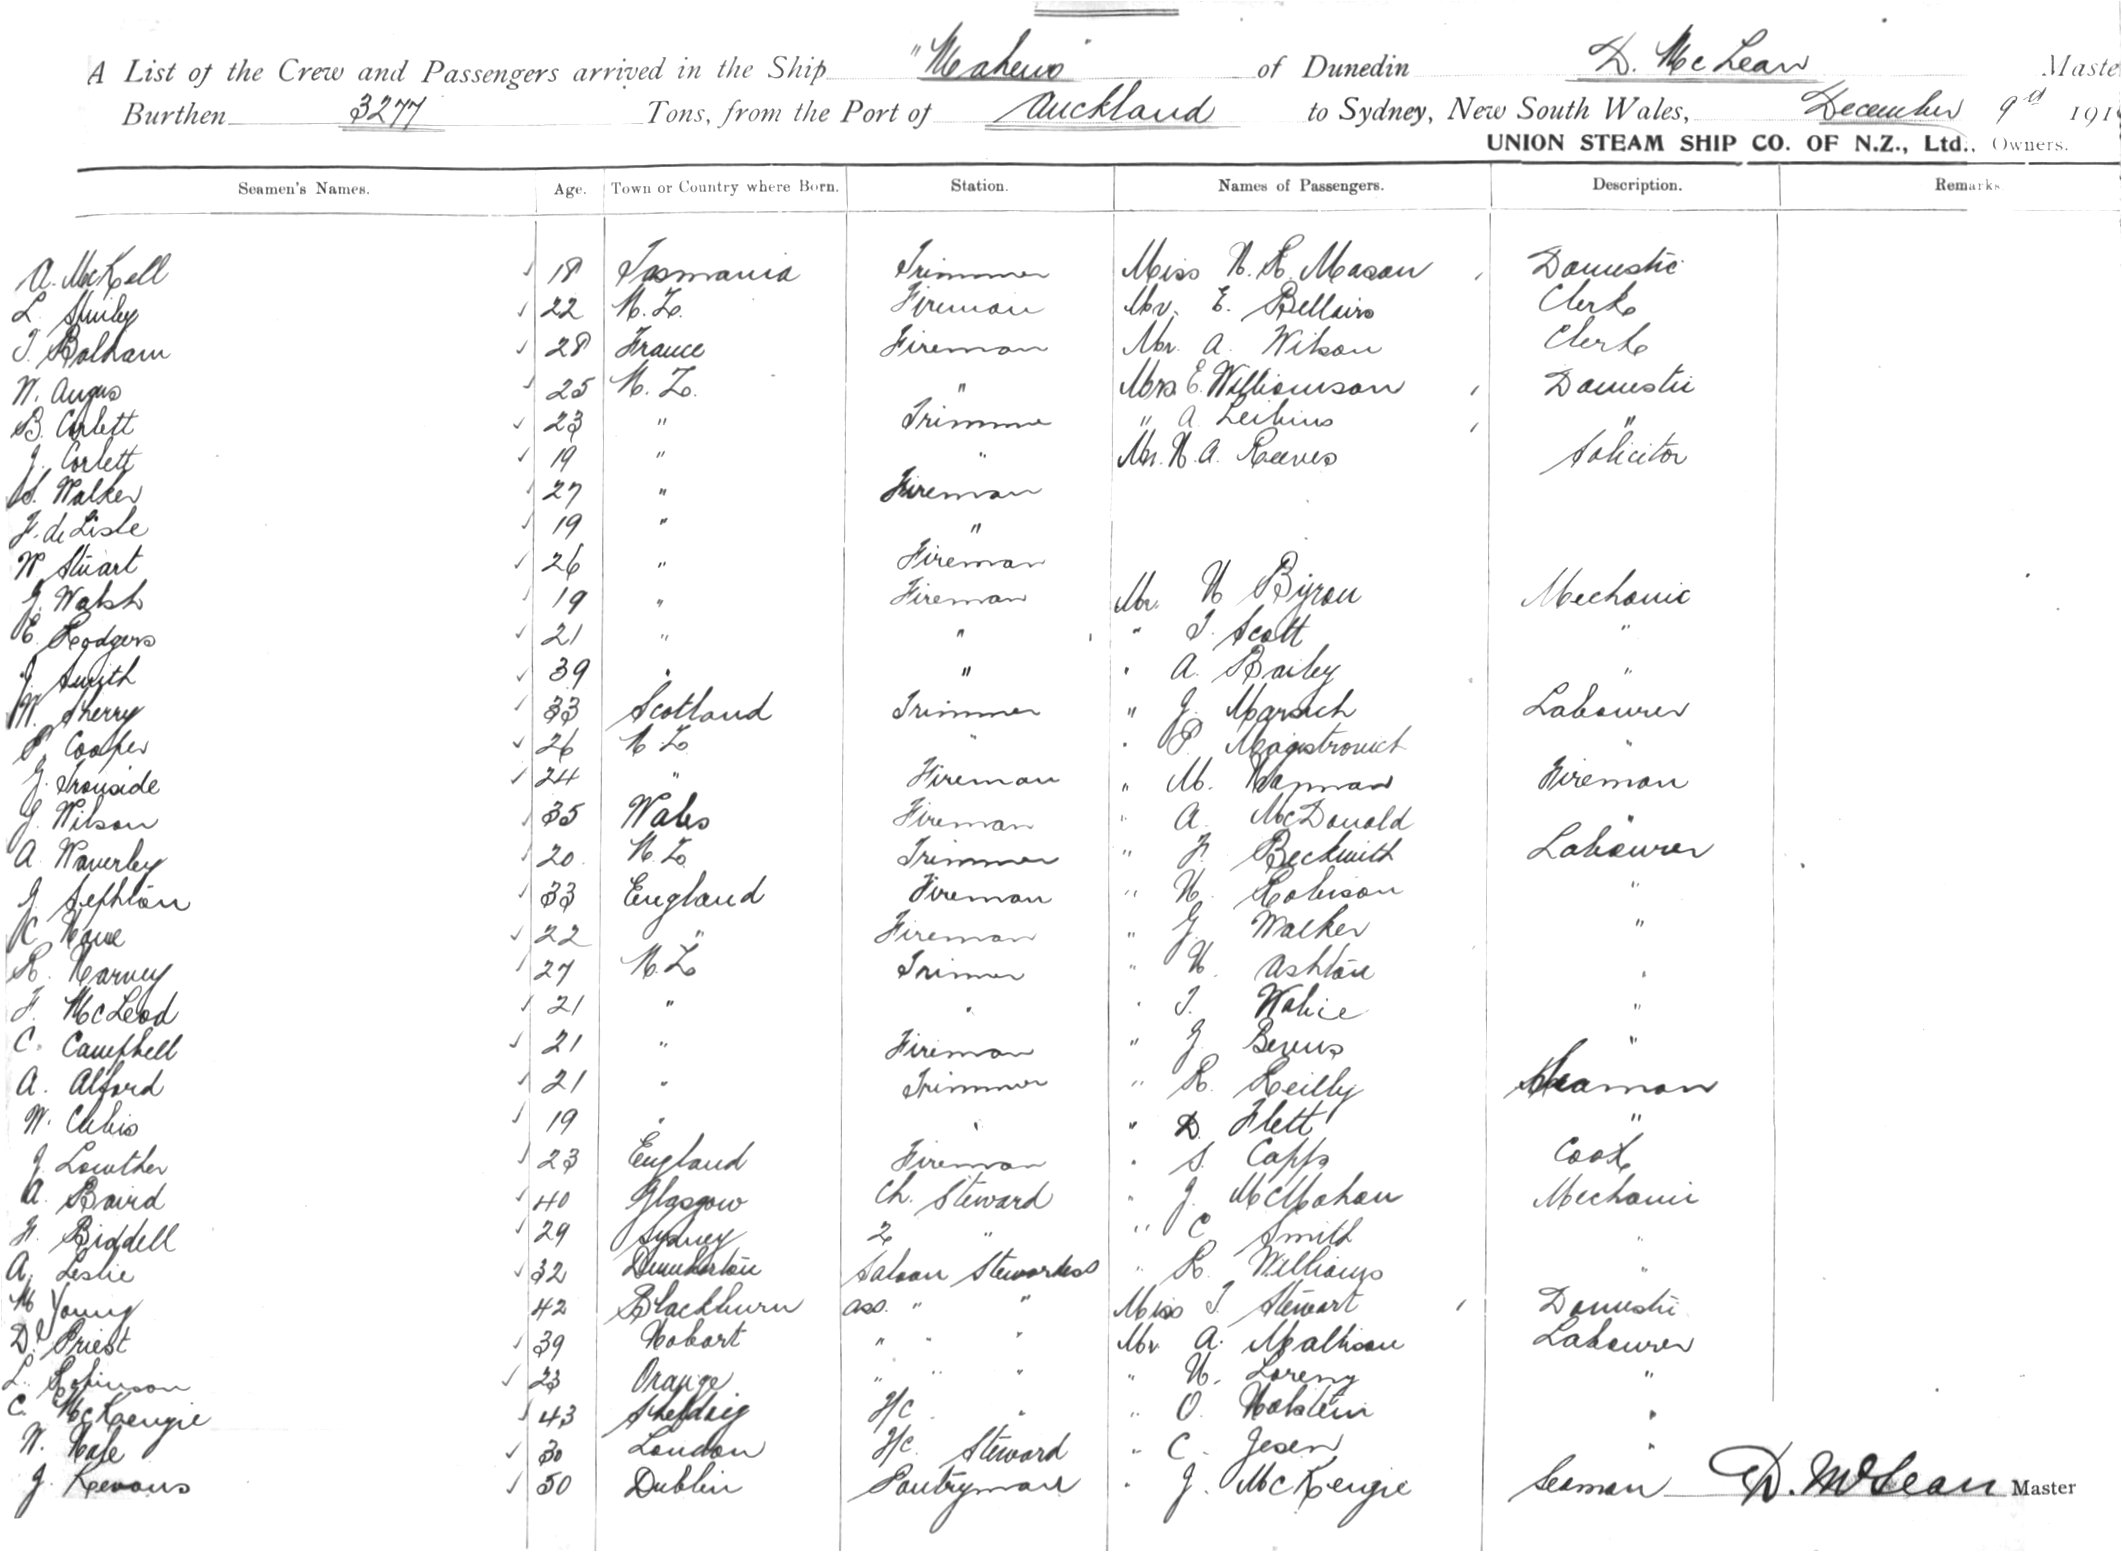 A List of the Crew and Passengers arrived in the Ship "Maheno" of Dunedin D. McLean Maste
Burthen 3277 Tons, from the Port of Auckland to Sydney, New South Wales, December 9th 191
UNION STEAM SHIP CO. OF N.Z., Ltd., Owners.
Seamen's Names. Age. Town or Country where Born. Station. Names of Passengers. Description. Remarks
A. McKell 18 Tasmania Trimmer Miss H. R. Mason Domestic
L. 22 N.Z. Fireman Mr. E. Bellairs Clerk
T. Balham 28 France Fireman Mr. A. Wilson Clerk
W. Angus 25 N.Z. " Mrs E. Williamson Domestic
B. Corlett 23 " Trimme " A "
J. Corlett 19 " " Mr. H. A. Reeves Solicitor
S. Walker 27 " Fireman
F. de Lisle 19 " "
W Stuart 26 " Fireman
J. Walsh 19 " Fireman Mr. H Byron Mechanic
E. Rodgers 21 " " " T. Scott "
J. Smith 39 " " " A. Bailey "
W. Sherry 33 Scotland Trimmer " J. Labourer
P. Cooper 26 N.Z. " " P. "
J. Ironside 24 " Fireman " M. Fireman
J. Wilson 35 Wales Fireman " A. McDonald "
A. Waverley 20 N.Z. Trimmer " F. Beckwith Labourer
J. Sephton 33 England Fireman " H. Robison "
C. 22 " Fireman " J. Walker "
R. Harvey 27 N.Z. Trimmer " H. Ashton "
F. McLeod 21 " " " T. "
C. Campbell 21 " Fireman " J. "
A. Alford 21 " Trimmer " R. Reilly Seaman
W. 19 " " " D. Flett "
J. Lowther 23 England Fireman " S. Capps Cook
A. Baird 40 Glasgow Ch. Steward " J. McMahon Mechanic
F. Biddell 29 Sydney 2 " " C Smith "
A. Leslie 32 Dumbarton Saloon Stewardess " R. Williams "
M Young 42 Blackburn ass. " " Miss T. Stewart Domestic
D. Priest 39 Hobart " " " Mr A. Labourer
L. Robinson 23 Orange " " " " H. "
C. McKenzie 43 F/C " " O. Holstein "
W. Hale 30 London F/C. Steward " C. Jesen "
J. Kevans 50 Dublin Pantryman " J. McKenzie Seaman D. McLean Master